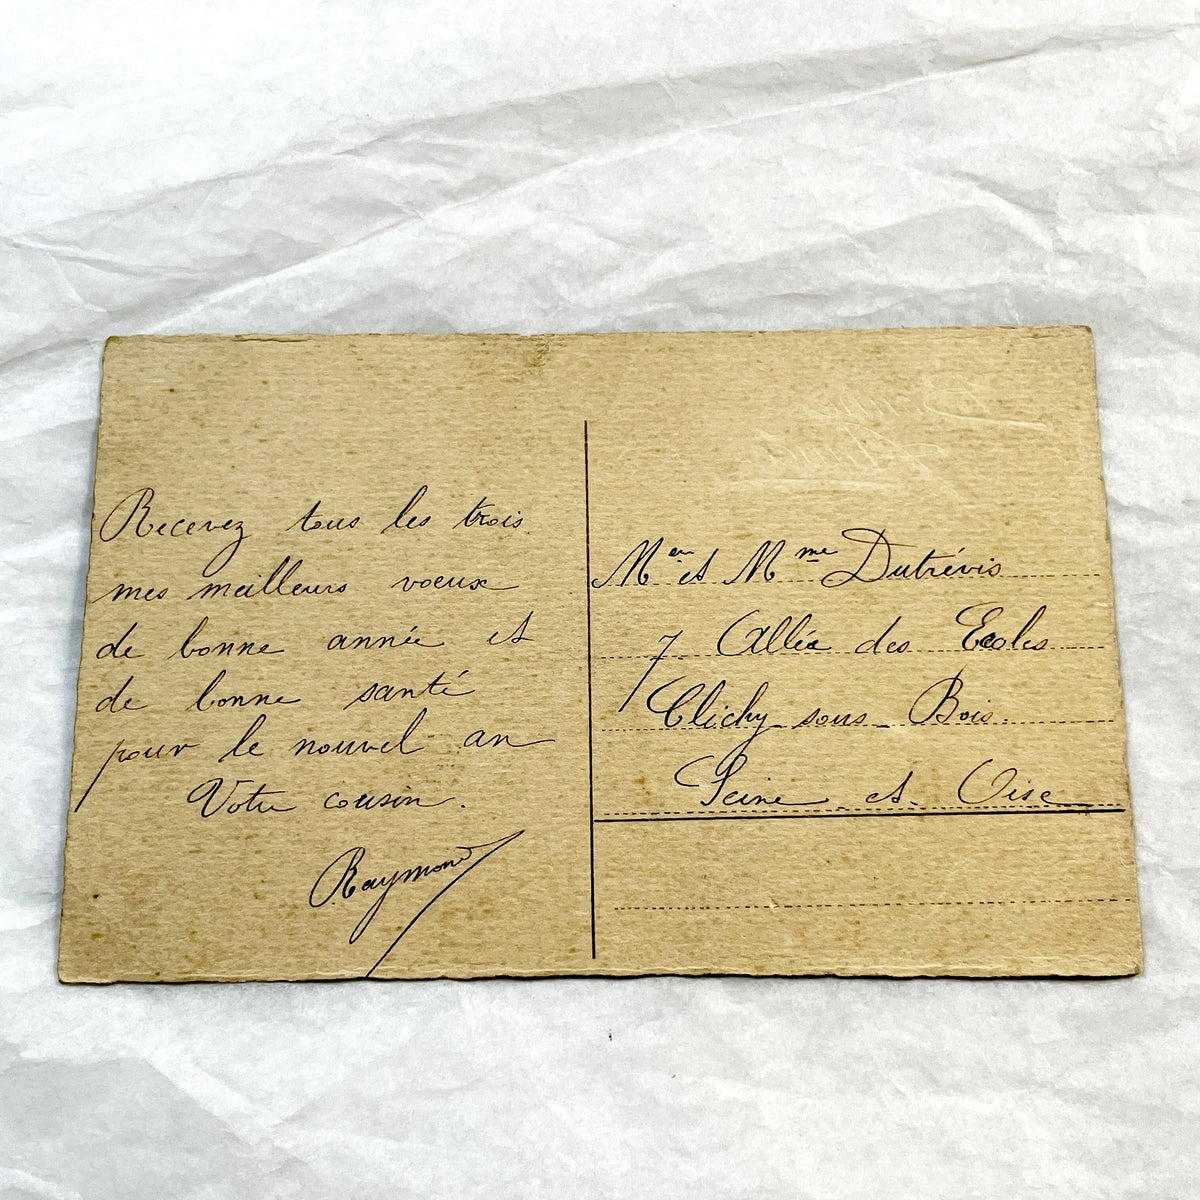 Recevez tous les trois
mes meilleurs voeux
de bonne année et
de bonne santé
pour le nouvel an
Votre cousin.
Raymond
Mer et Mme Dutrévis
7 Allée des Ecoles
Clichy sous Bois.
Seine et Oise